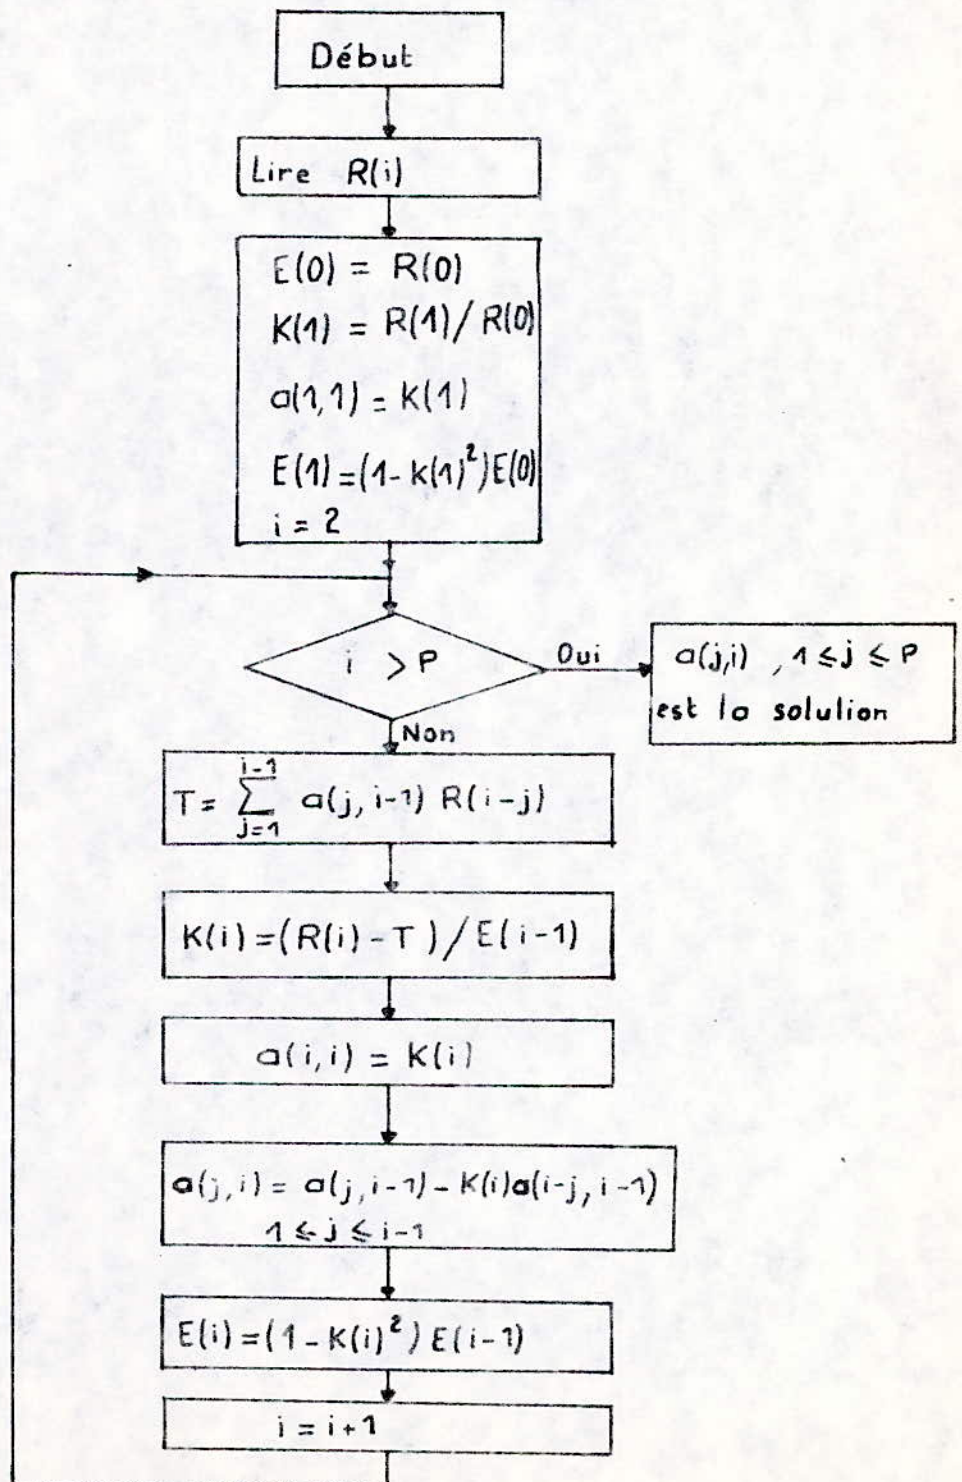 Début
Lire R(i)
E(0) = R(0)
K(1) = R(1)/R(0)
a(1,1) = K(1)
E(1)=(1-K(1)²)E(0)
i = 2
i > P
Oui
a(j,i) , 1 ≤ j ≤ P
est la solution
Non
T = ∑_{j=1}^{i-1} a(j, i-1) R(i-j)
K(i) = (R(i) - T) / E(i-1)
a(i,i) = K(i)
a(j,i) = a(j,i-1) - K(i)a(i-j, i-1)
1 ≤ j ≤ i-1
E(i) = (1 - K(i)²) E(i-1)
i = i+1